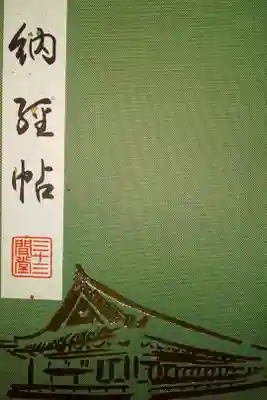 納經帖
三十三
間堂